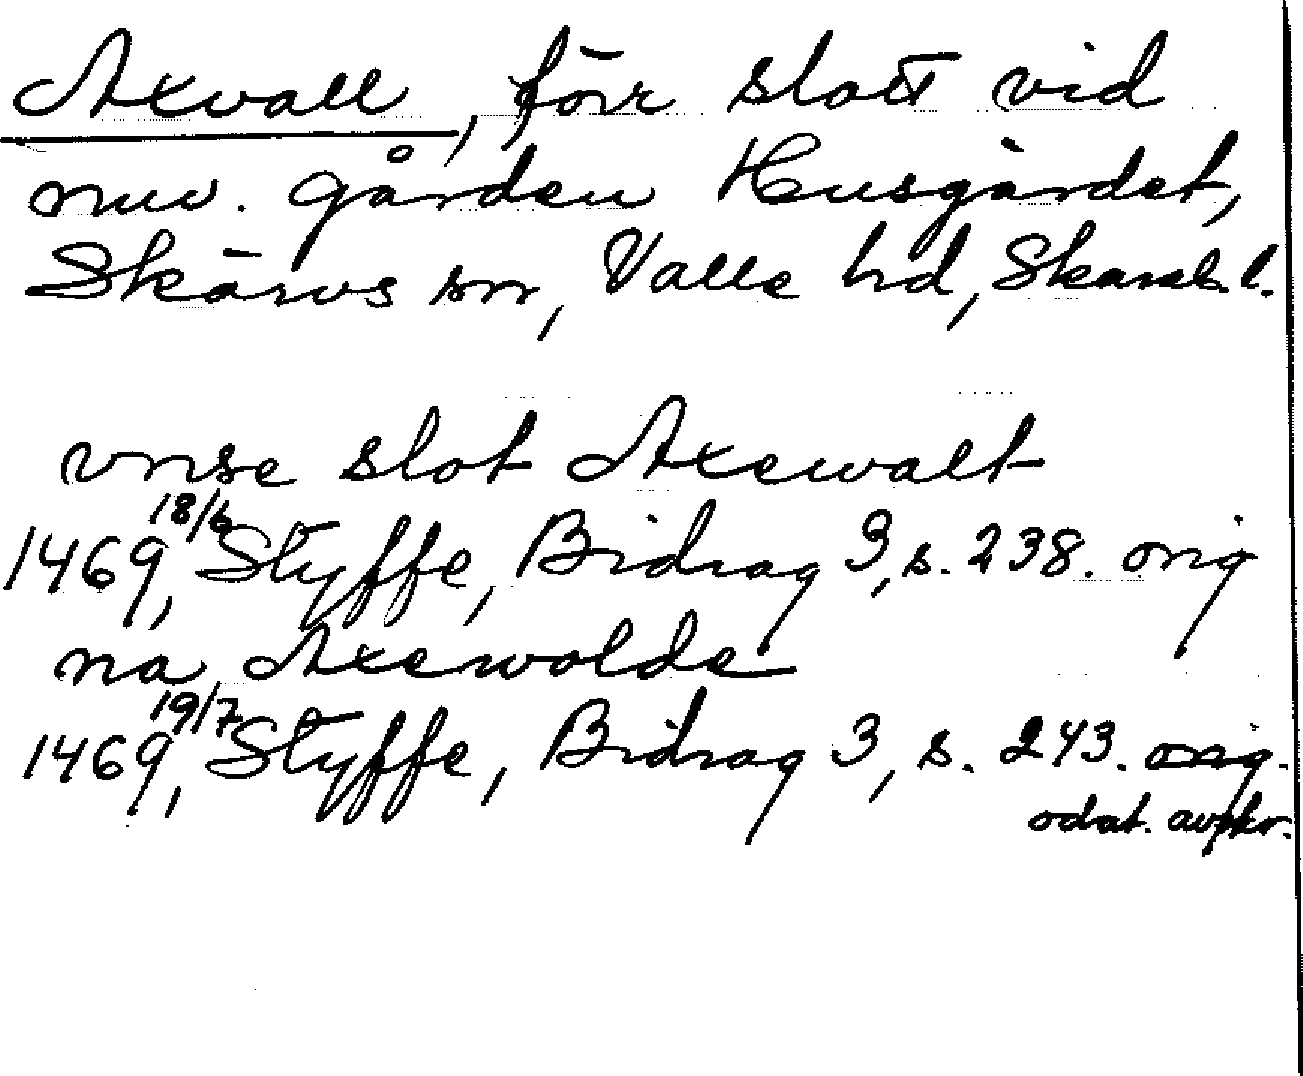 Axvall, förr slott vid
nuv. gården Husgärdet,
Skärvs sn, Valle hd, Skarab. l.
vnse slot Axewalt
1469 18/6, Styffe, Bidrag 3, s. 238. orig
na Axewolde
1469 19/7, Styffe, Bidrag 3, s. 243. orig.
odat. avskr.